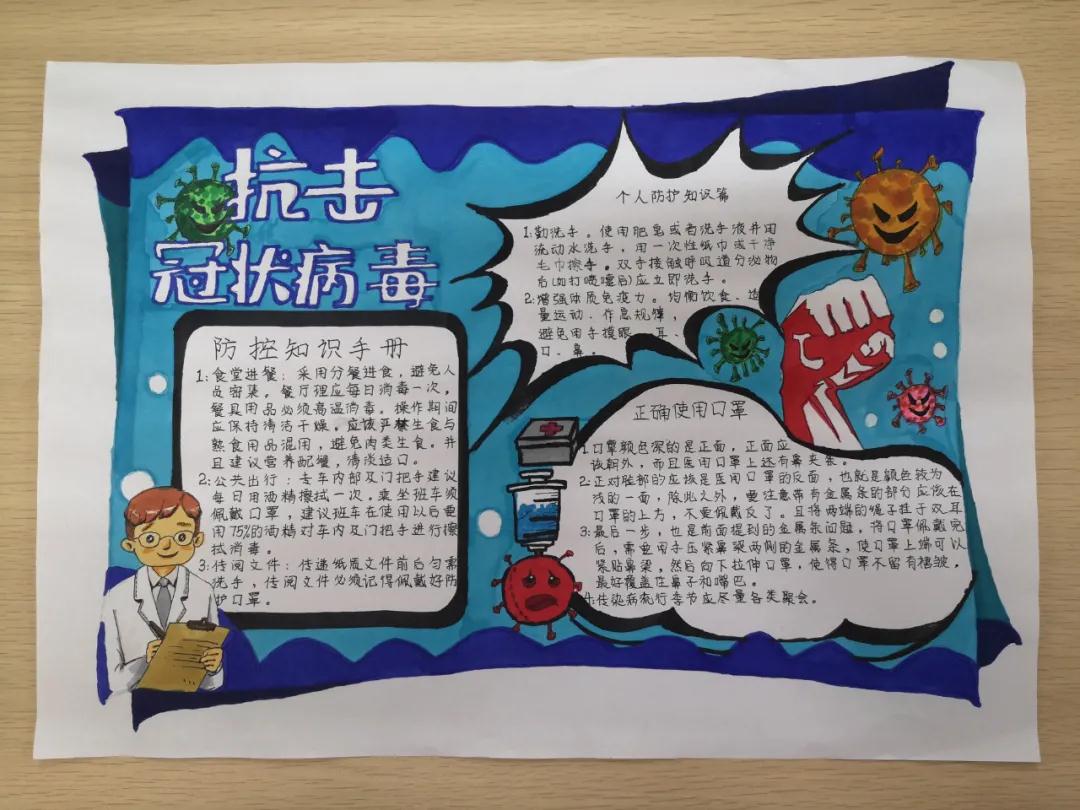 抗击
冠状病毒
防控知识手册
1:食堂进餐：采用分餐进食，避免人
员密集。餐厅理应每日消毒一次，
餐具用品必须高温消毒。操作期间
应保持清洁干燥。应该严禁生食与
熟食用品混用，避免肉类生食。并
且建议营养配餐，清淡适口。
2:公共出行：专车内部及门把手建议
每日用酒精擦拭一次。乘坐班车须
佩戴口罩，建议班车在使用以后要
用75%的酒精对车内及门把手进行擦
拭消毒。
3:传阅文件：传递纸质文件前后匀需
洗手，传阅文件必须记得佩戴好防
护口罩。
个人防护知识篇
1:勤洗手。使用肥皂或者洗手液并用
流动水洗手，用一次性纸巾或干净
毛巾擦手。双手接触呼吸道分泌物
后(如打喷嚏后)应立即洗手。
2:增强体质免疫力。均衡饮食、适
量运动、作息规律，
避免用手摸眼、耳、
口、鼻。
正确使用口罩
1:口罩颜色深的是正面，正面应
该朝外，而且医用口罩上还有鼻夹条。
2:正对脸部的应该是医用口罩的反面，也就是颜色较为
浅的一面，除此之外，要注意带有金属条的部分应该在
口罩的上方，不要佩戴反了。且将两端的绳子挂于双耳
3:最后一步，也是前面提到的金属条问题，将口罩佩戴完
后，需要用手压紧鼻梁两侧的金属条，使口罩上端可以
紧贴鼻梁，然后向下拉伸口罩，使得口罩不留有褶皱，
最好覆盖住鼻子和嘴巴。
4:传染病流行季节应尽量各类聚会。